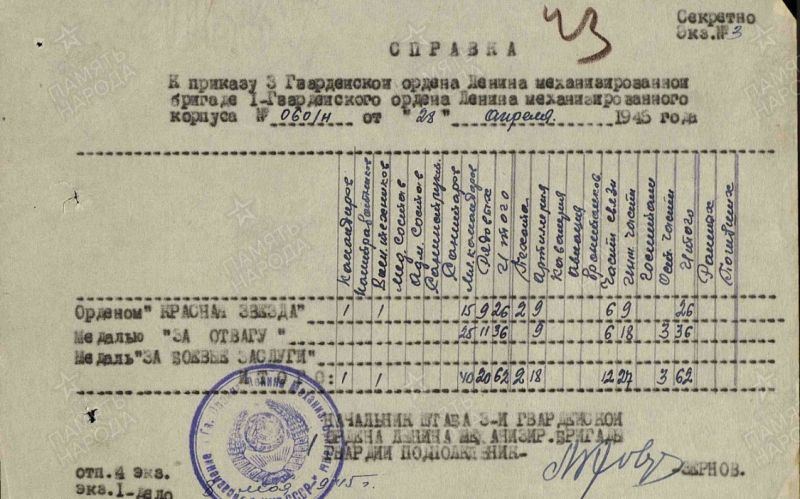 43
Секретно
Экз.№ 3
СПРАВКА
К приказу 3 Гвардейской ордена Ленина механизированной
бригаде 1-Гвардейского ордена Ленина механизированного
корпуса № 060/н от "28" апреля 1945 года
Командиров
Политработников
Воен.техников
Мед состав
Адм. состав
Санинструкт.
Санитаров
Мл. командиров
Рядовых
Итого
Пехота
Артиллерия
Кавалерия
Авиация
Бронетанков
Части связи
Инж. части
Госпитали
Ост. части
Итого
Раненых
Погибших
Орденом" КРАСНАЯ ЗВЕЗДА" 1 1 15 9 26 2 9 6 9 26
Медалью "ЗА ОТВАГУ " 25 11 36 9 6 18 3 36
Медаль"ЗА БОЕВЫЕ ЗАСЛУГИ"
ИТОГО: 1 1 40 20 62 2 18 12 27 3 62
НАЧАЛЬНИК ШТАБА 3-Й ГВАРДЕЙСКОЙ
ОРДЕНА ЛЕНИНА МЕХАНИЗИР.БРИГАДЫ
ГВАРДИИ ПОДПОЛКОВНИК-
ЗЕРНОВ.
отп.4 экз.
экз.1-дело
мая 1945 г.
ПАМЯТЬ НАРОДА
ПАМЯТЬ НАРОДА
ПАМЯТЬ НАРОДА